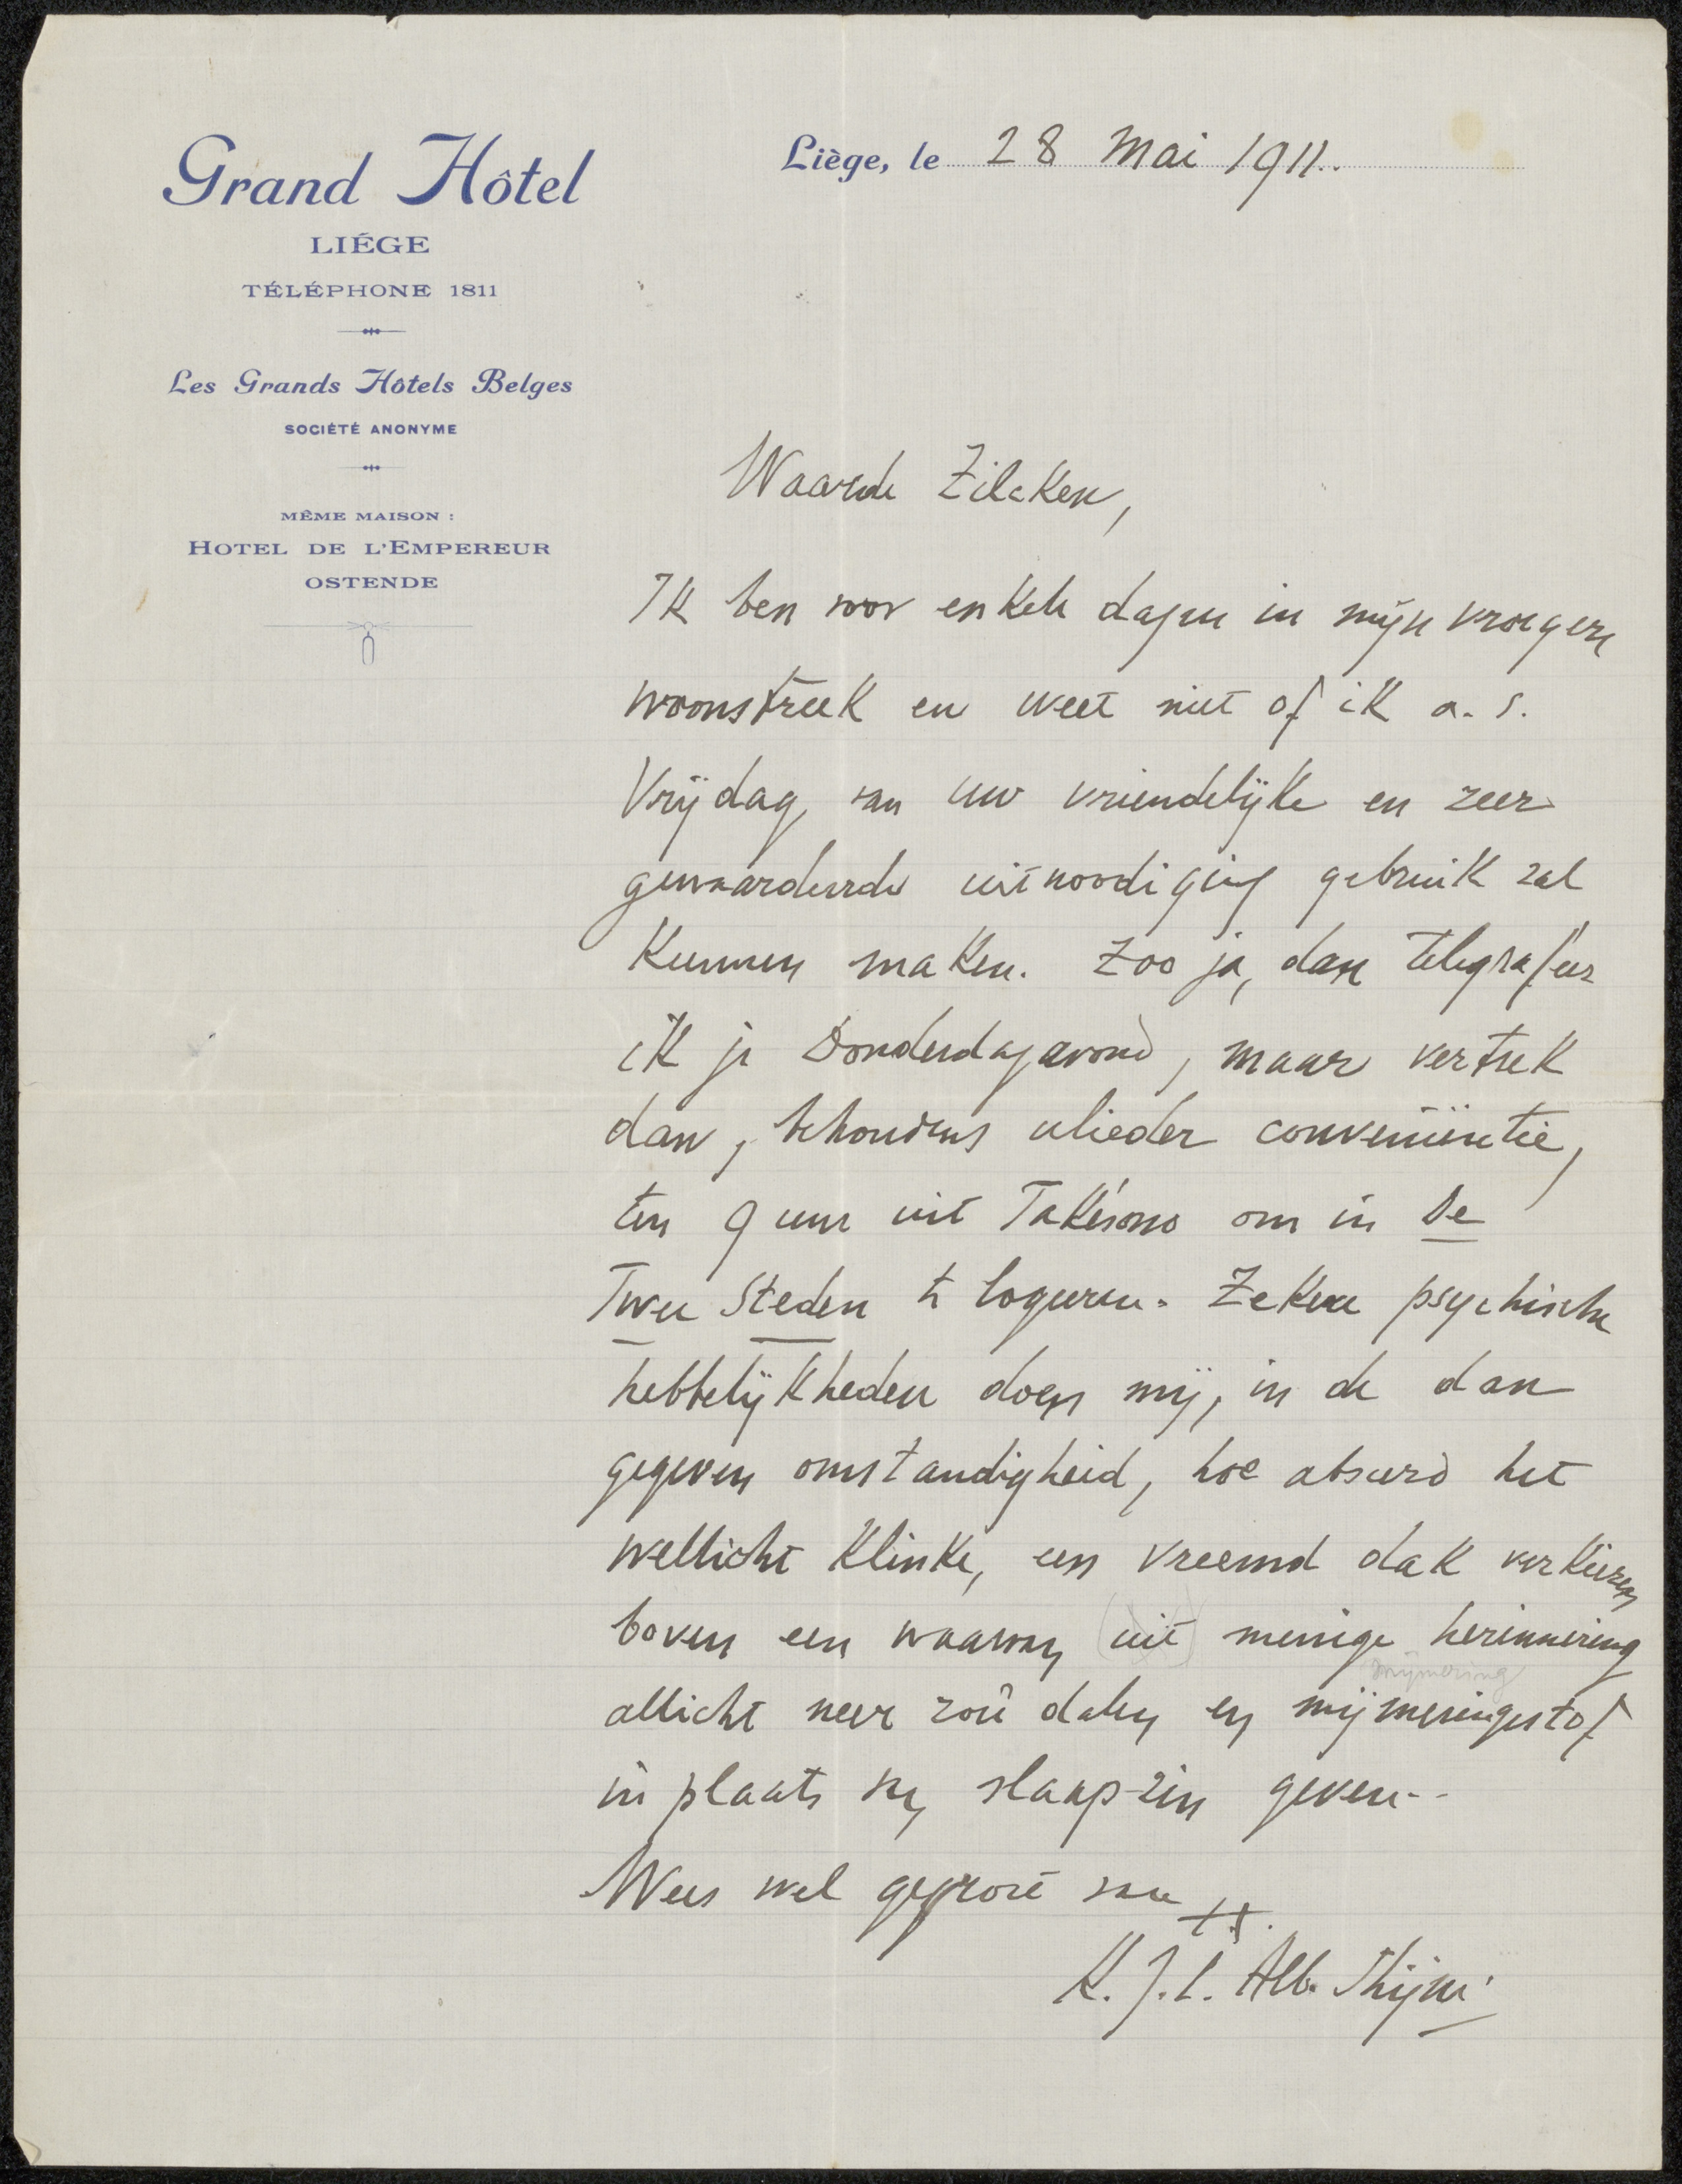 Grand Hôtel
LIÉGE
TÉLÉPHONE 1811
Les Grands Hôtels Belges
SOCIÉTÉ ANONYME
MÊME MAISON :
HOTEL DE L'EMPEREUR
OSTENDE
Liège, le 28 Mai 1911.
Waarde Zilcken,
Ik ben voor enkele dagen in mijn vroegere
woonstreek en weet niet of ik a. s.
Vrijdag van uw vriendelijke en zeer
gewaardeerde uitnoodiging gebruik zal
kunnen maken. Zoo ja, dan telegrafeer
ik je Donderdagavond, maar vertrek
dan, behoudens ulieder conveniëntie,
ten 9 uur uit Takésono om in De
Twee Steden te logeeren. Zekere psychische
hebbelijkheden doen mij, in de dan
gegeven omstandigheid, hoe absurd het
wellicht klinke, een vreemd dak verkiezen
boven een waarvan (uit) menige herinnering
mijmering
allicht neer zoû dalen en mijmeringestof
in plaats van slaap-zin geven..
Wees wel gegroet van
t.t.
K. J. L. Alb. Thijm